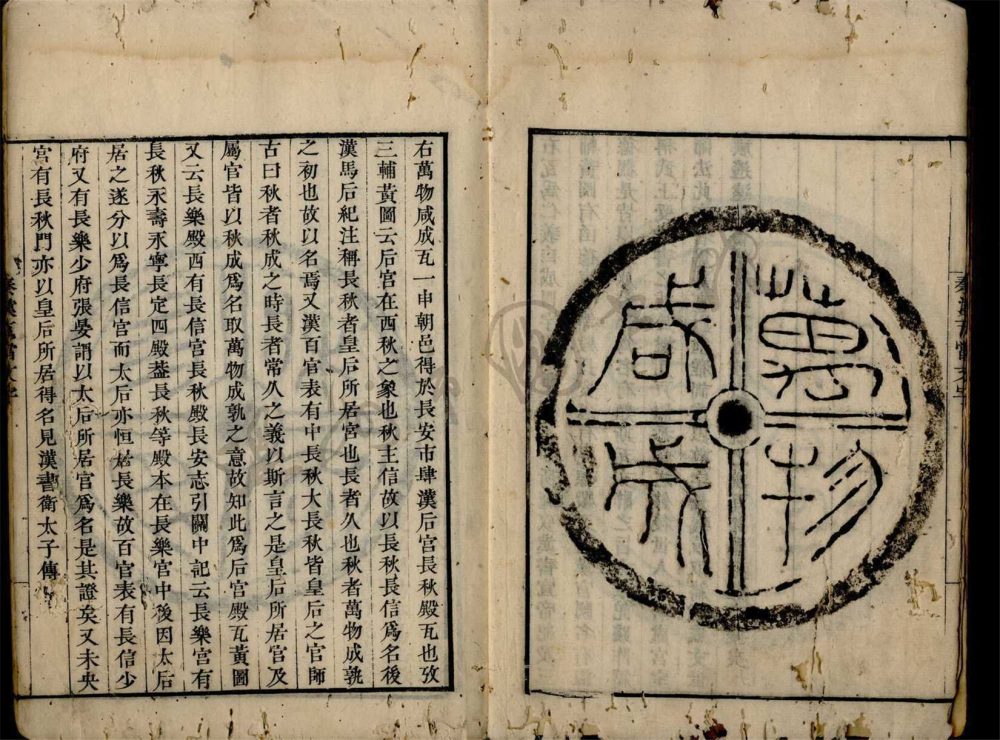 萬物
咸成
右萬物咸成瓦一申朝邑得於長安市肆漢后宮長秋殿瓦也攷
三輔黃圖云后宮在西秋之象也秋主信故以長秋長信爲名後
漢馬后紀注稱長秋者皇后所居宮也長者久也秋者萬物成孰
之初也故以名焉又漢百官表有中長秋大長秋皆皇后之官師
古曰秋者秋成之時長者常久之義以斯言之是皇后所居宮及
屬官皆以秋成爲名取萬物成孰之意故知此爲后宮殿瓦黃圖
又云長樂殿西有長信宮長秋殿長安志引關中記云長樂宮有
長秋永壽永寧長定四殿葢長秋等殿本在長樂宮中後因太后
居之遂分以爲長信宮而太后亦恒居長樂故百官表有長信少
府又有長樂少府張晏謂以太后所居宮爲名是其證矣又未央
宮有長秋門亦以皇后所居得名見漢書衛太子傳